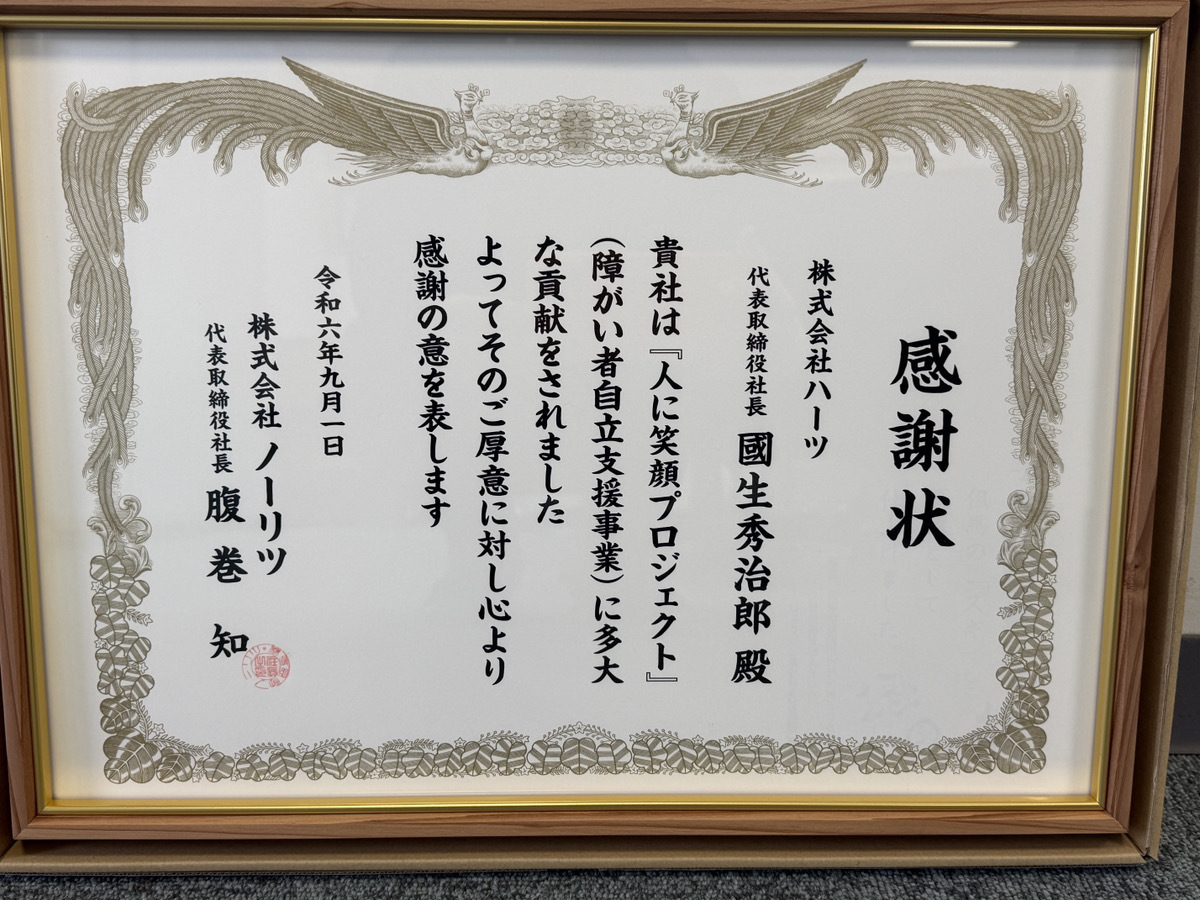 感謝状
株式会社ハーツ
代表取締役社長 國生秀治郎 殿
貴社は『人に笑顔プロジェクト』
(障がい者自立支援事業)に多大
な貢献をされました
よってそのご厚意に対し心より
感謝の意を表します
令和六年九月一日
株式会社 ノーリツ
代表取締役社長 腹巻 知